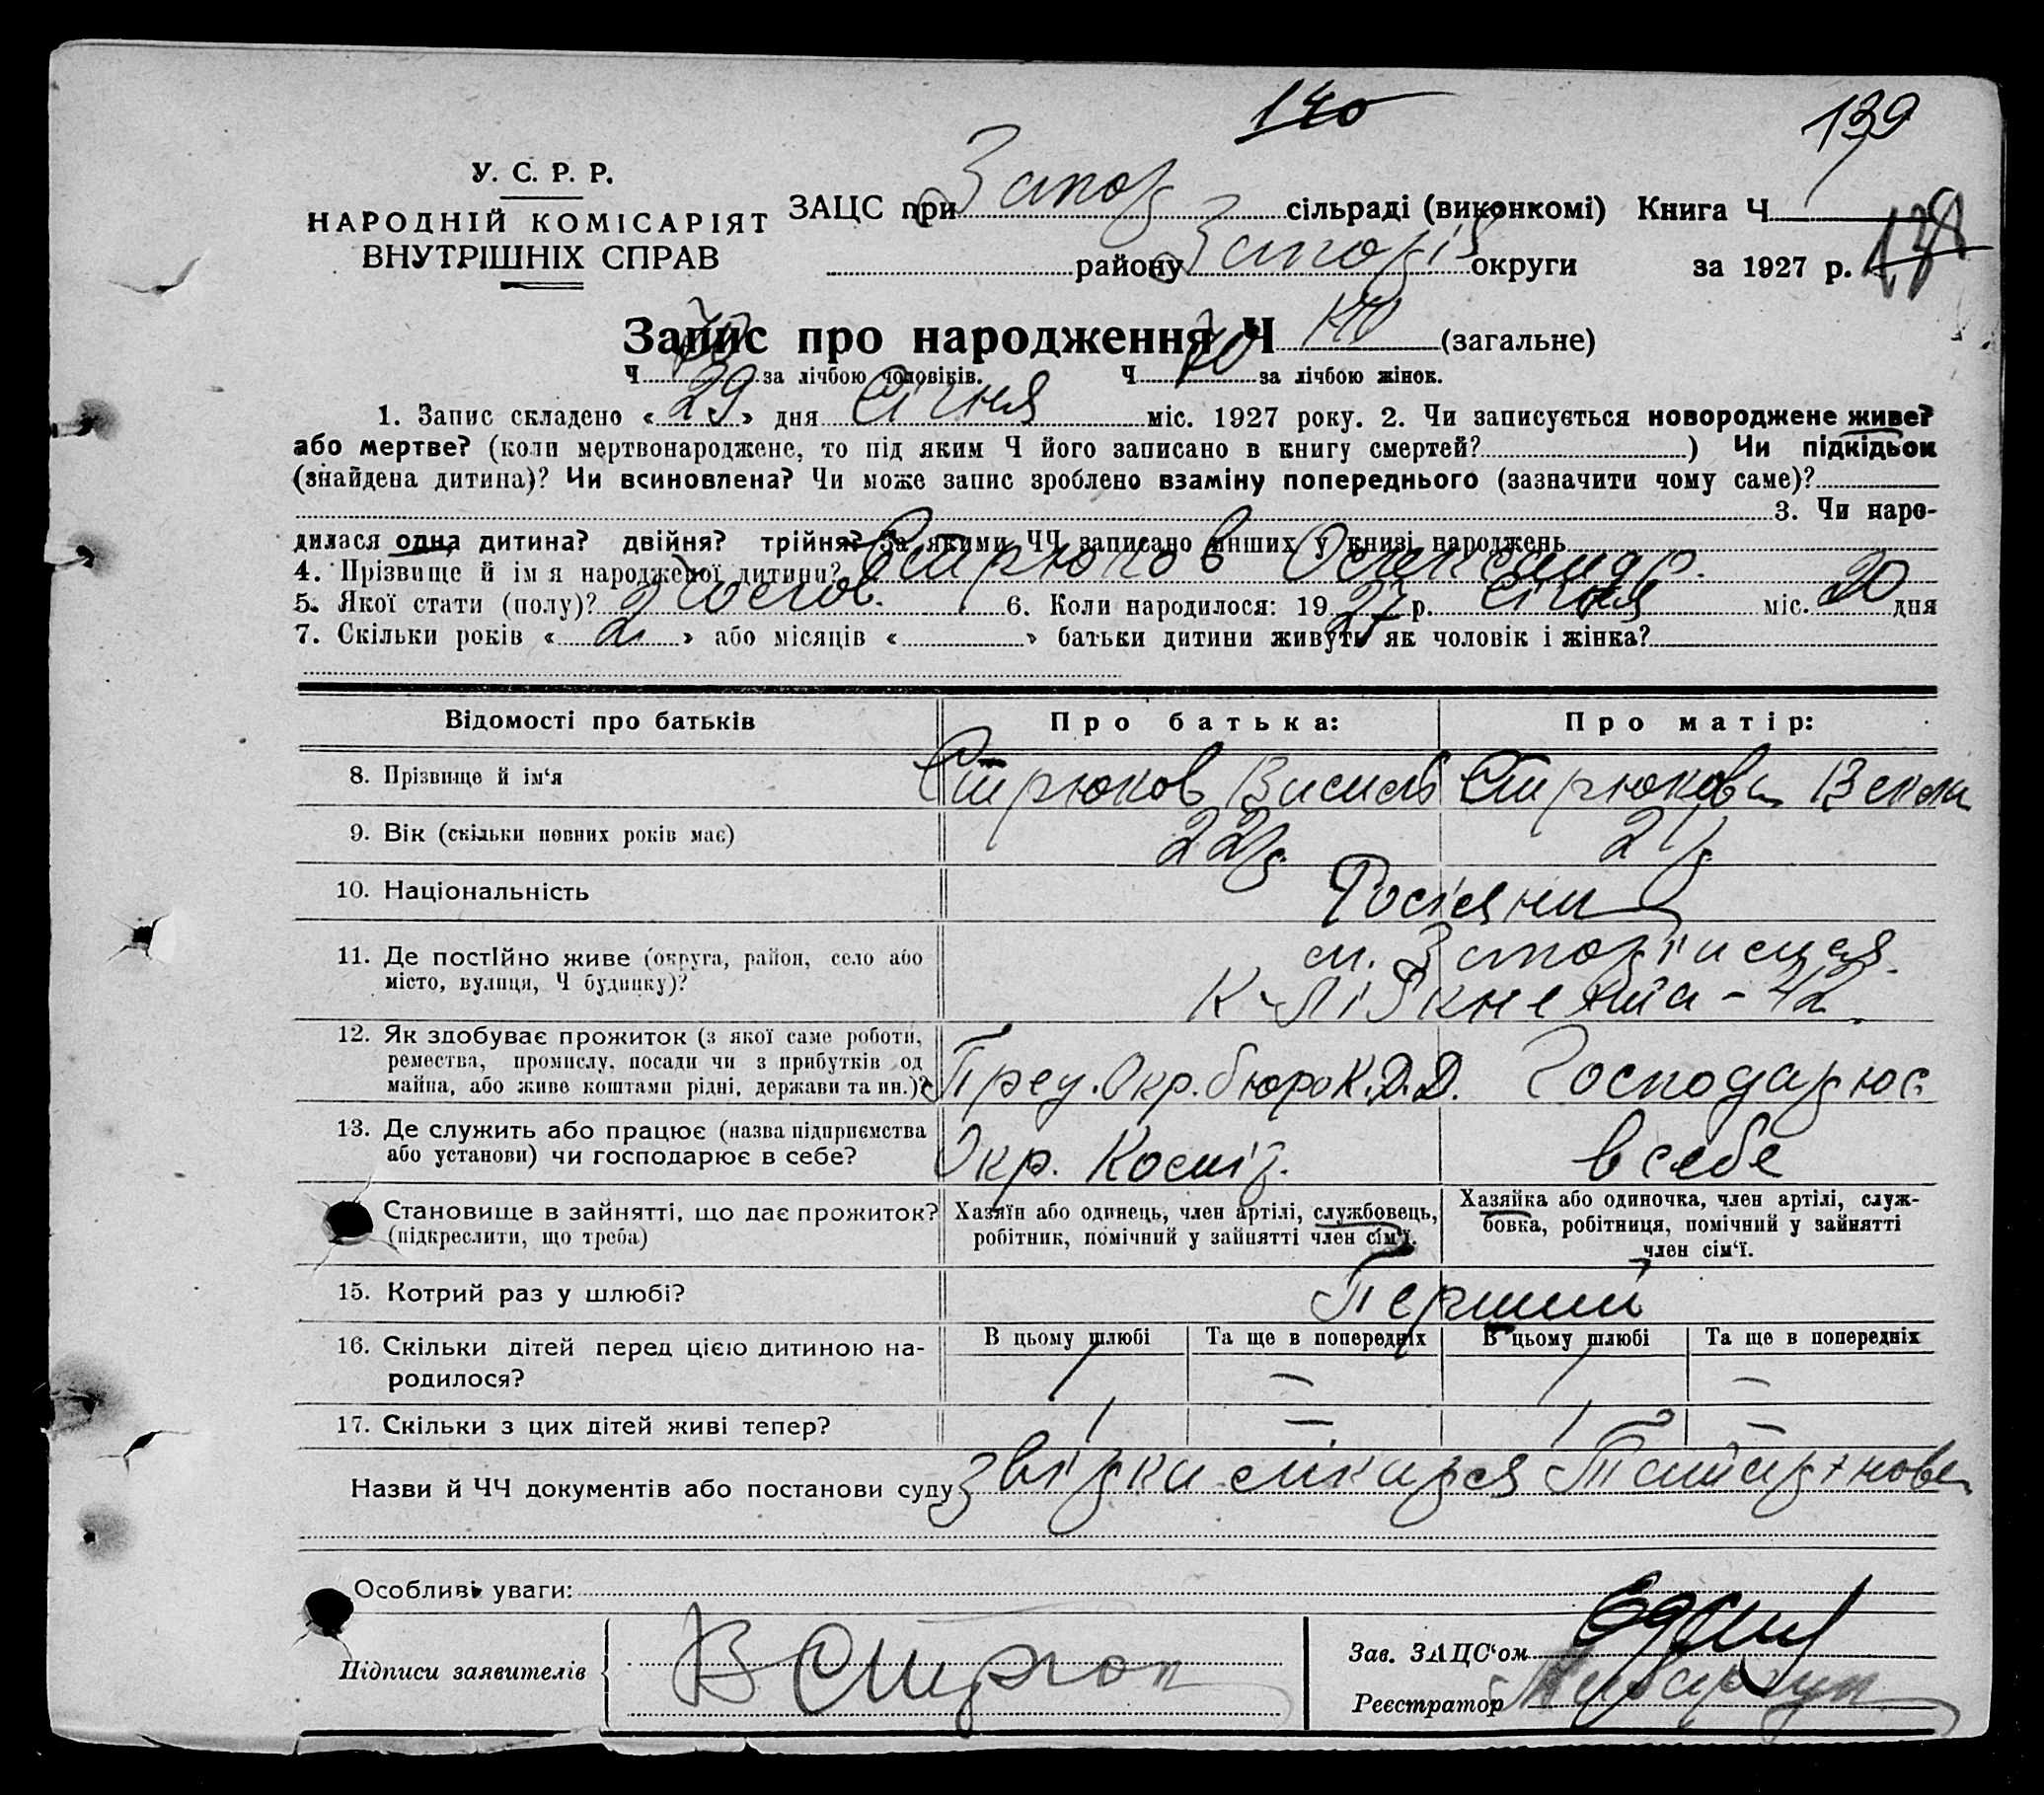 140
139
У. С. Р. Р.
НАРОДНІЙ КОМІСАРІЯТ
ВНУТРІШНІХ СПРАВ
ЗАЦС при Запор сільраді (виконкомі) Книга Ч
району Запоріз округи за 1927 р. 138
Запис про народження Ч 140 (загальне)
Ч 70 за лічбою чоловіків. Ч 70 за лічбою жінок.
1. Запис складено « 29 » дня Січня міс. 1927 року. 2. Чи записується новороджене живе?
або мертве? (коли мертвонароджене, то під яким Ч його записано в книгу смертей? ) Чи підкідьок
(знайдена дитина)? Чи всиновлена? Чи може запис зроблено взаміну попереднього (зазначити чому саме)?
3. Чи наро-
дилася одна дитина? двійня? трійня? За якими ЧЧ записано инших у книзі народжень
4. Прізвище й ім'я народженої дитини? Стрюков Олександр.
5. Якої стати (полу)? чолов. 6. Коли народилося: 1927 р. січня міс. 20 дня
7. Скільки років « 2 » або місяців « » батьки дитини живуть як чоловік і жінка?
Відомості про батьків Про батька: Про матір:
8. Прізвище й ім'я Стрюков Василь Стрюкова
9. Вік (скільки повних років має) 22 р 21 р
10. Національність Росіяни
11. Де постійно живе (округа, район, село або м. Запоріжжя
місто, вулиця, Ч будинку)? К-Лібкнехта - 42.
12. Як здобуває прожиток (з якої саме роботи,
ремества, промислу, посади чи з прибутків од
майна, або живе коштами рідні, держави та ин.)? Окр. бюро К.Д.Д. Господарює
13. Де служить або працює (назва підприємства
або установи) чи господарює в себе? Окр. в себе
Становище в зайнятті, що дає прожиток? Хазяїн або одинець, член артілі, службовець, Хазяйка або одиночка, член артілі, служ-
(підкреслити, що треба) робітник, помічний у зайнятті член сім'ї. бовка, робітниця, помічний у зайнятті
член сім'ї.
15. Котрий раз у шлюбі? Перший
16. Скільки дітей перед цією дитиною на- В цьому шлюбі Та ще в попередніх В цьому шлюбі Та ще в попередніх
родилося? 1 — 1 —
17. Скільки з цих дітей живі тепер? 1 — 1 —
Назви й ЧЧ документів або постанови суду
Особливі уваги:
Підписи заявителів В Стрюк
Зав. ЗАЦС'ом
Реєстратор